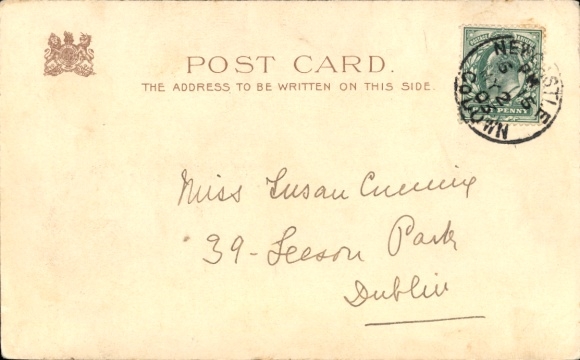 POST CARD.
THE ADDRESS TO BE WRITTEN ON THIS SIDE.
NEWCASTLE
CO DOWN
PENNY
Miss Susan
39 - Leeson Park
Dublin